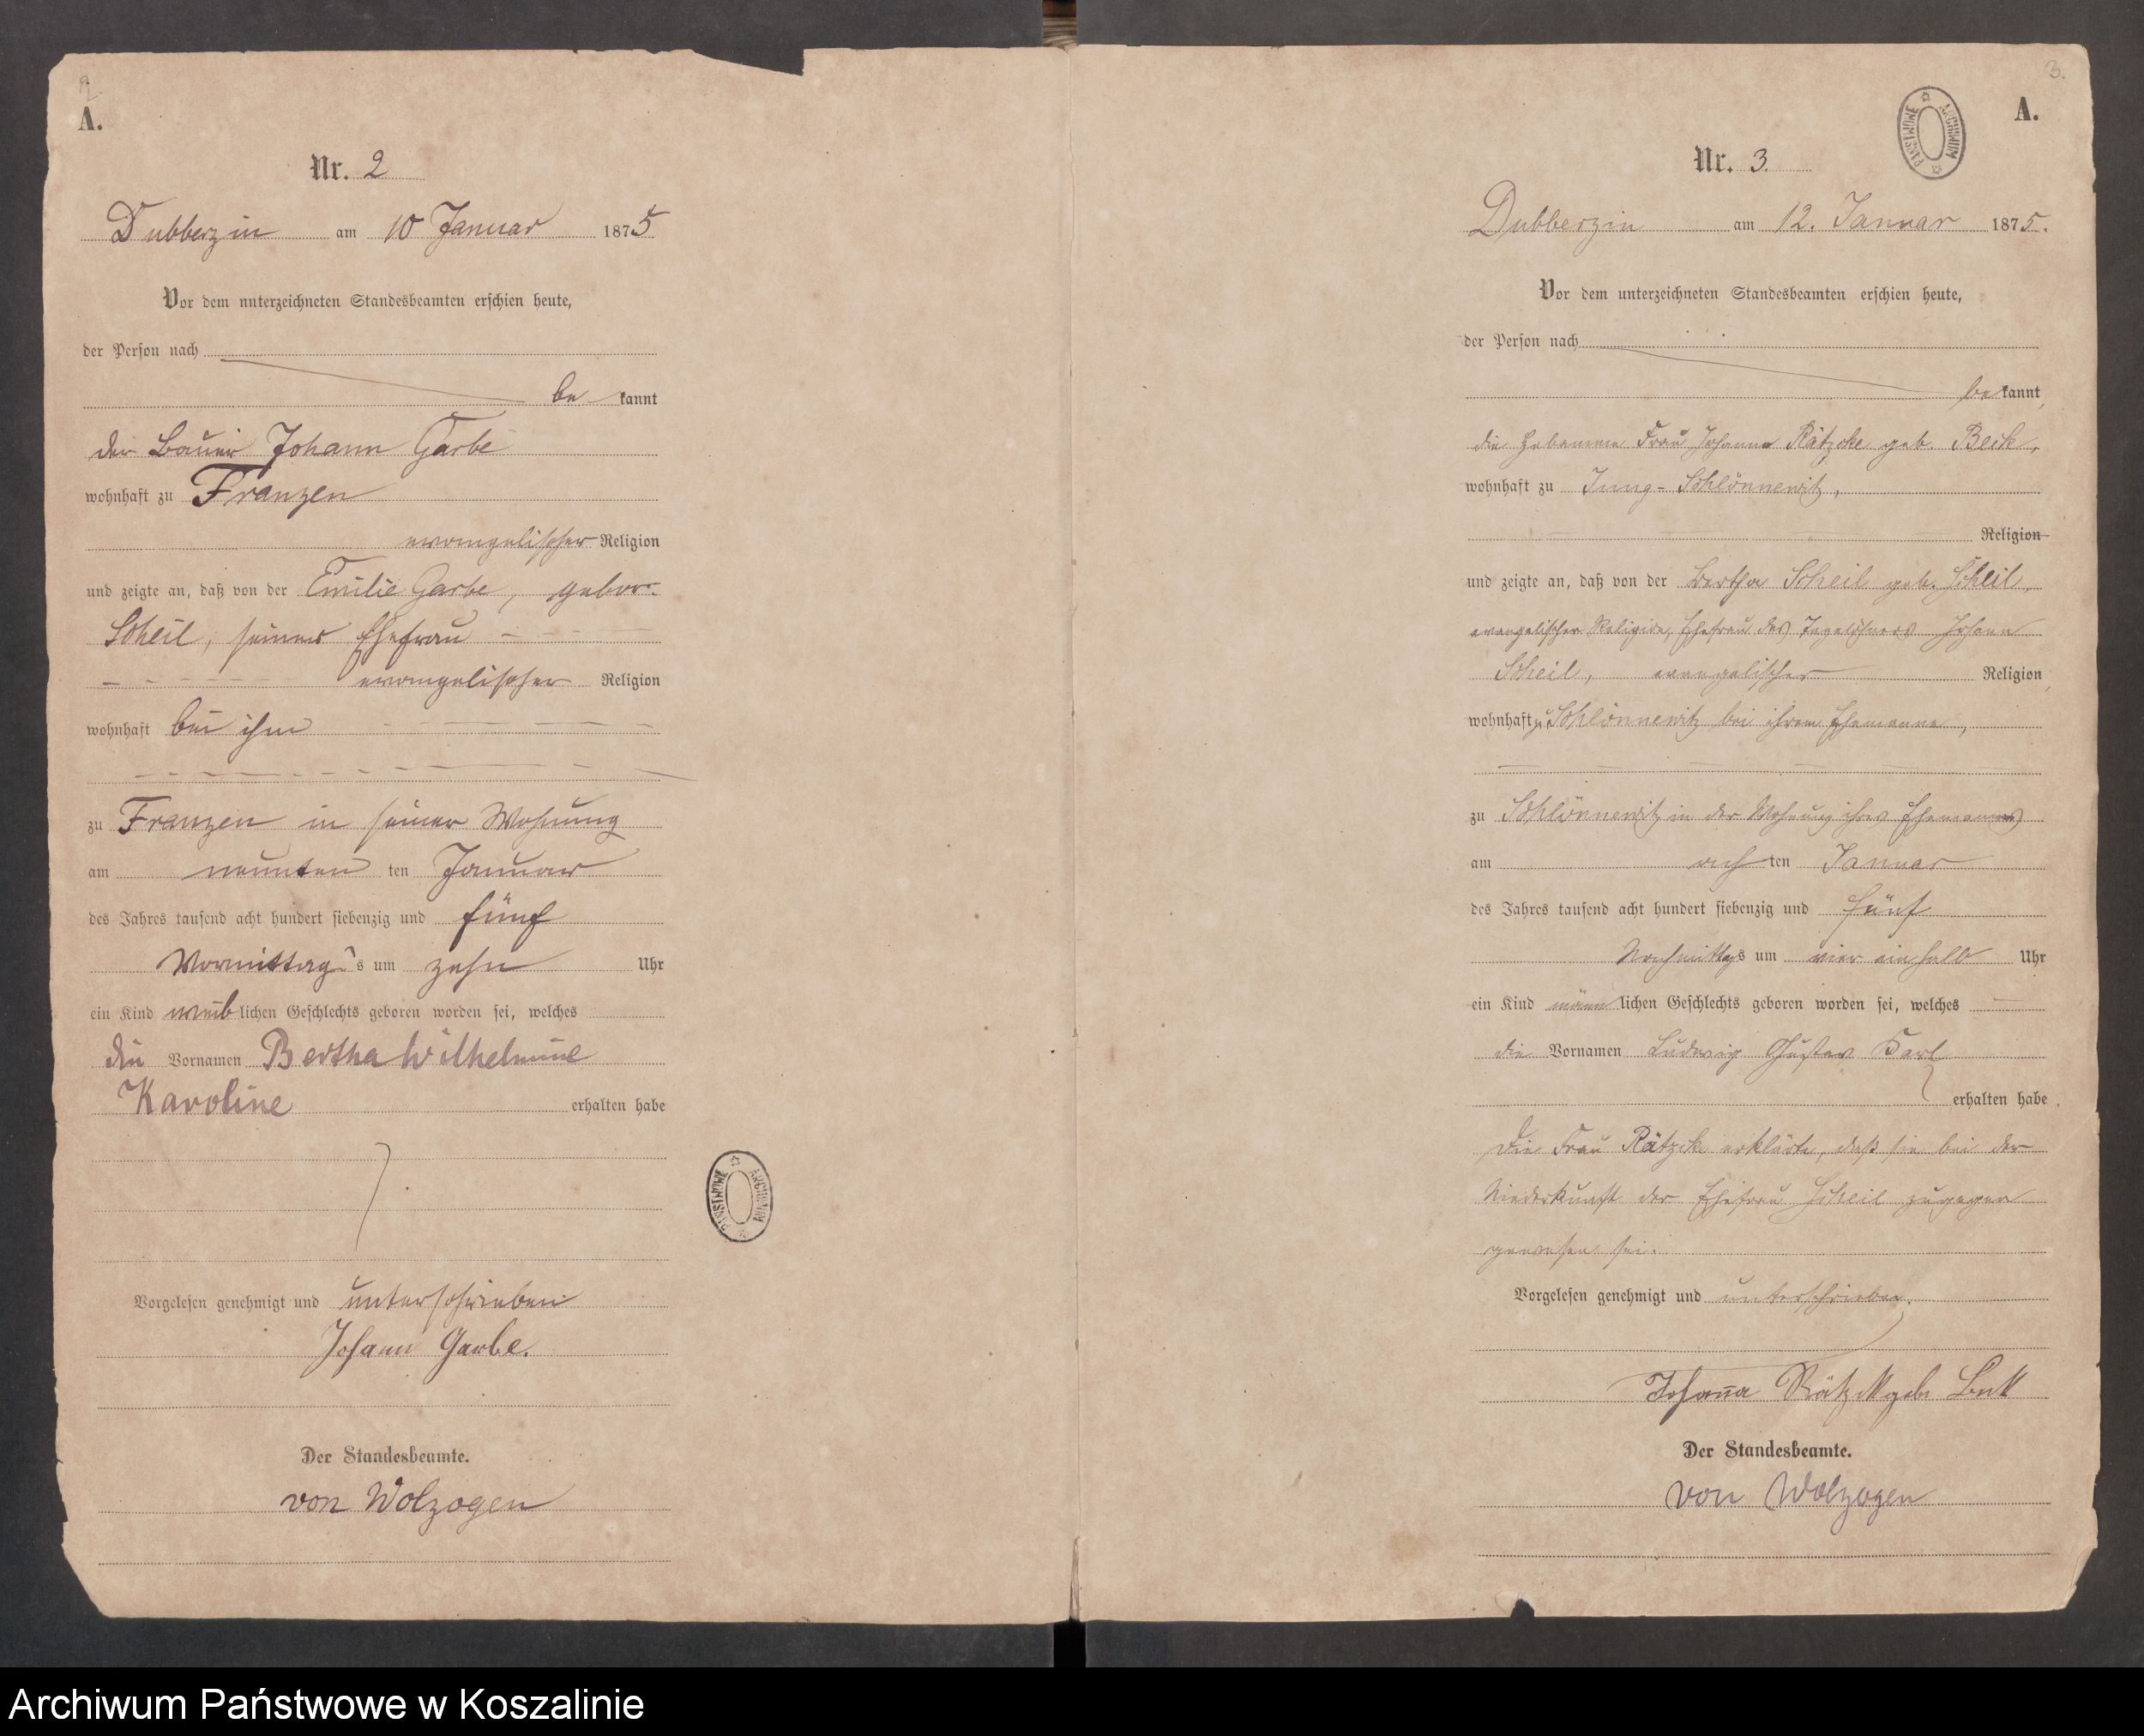 2
A.
Nr. 2
Dubberzin am 10 Januar 1875
Vor dem unterzeichneten Standesbeamten erschien heute,
der Person nach
be kannt
der Bauer Johann Garbe
wohnhaft zu Franzen
evangelischer Religion
und zeigte an, daß von der Emilie Garbe, gebor.
Scheil, seiner Ehefrau
evangelischer Religion
wohnhaft bei ihm
zu Franzen in seiner Wohnung
am neunten ten Januar
des Jahres tausend acht hundert siebenzig und fünf
Vormittag s um zehn Uhr
ein Kind weib lichen Geschlechts geboren worden sei, welches
die Vornamen Bertha Wilhelmine
Karoline erhalten habe
PAŃSTWOWE ARCHIWUM
Vorgelesen genehmigt und unterschrieben
Johann Garbe.
Der Standesbeamte.
von Wolzogen
3.
A.
PAŃSTWOWE ARCHIWUM
Nr. 3.
Dubberzin am 12. Januar 1875.
Vor dem unterzeichneten Standesbeamten erschien heute,
der Person nach
be kannt,
die Hebamme Frau Johanna Rätzcke geb. Beck,
wohnhaft zu Jung-Schlönnewitz,
Religion
und zeigte an, daß von der Bertha Scheil geb. Scheil,
evangelischer Religion, Ehefrau des Tagelöhners Johann
Scheil, evangelischer Religion,
wohnhaft zu Schlönnewitz bei ihrem Ehemanne,
zu Schlönnewitz in der Wohnung ihres Ehemannes
am ach ten Januar
des Jahres tausend acht hundert siebenzig und fünf
Nachmittags um vier ein halb Uhr
ein Kind männ lichen Geschlechts geboren worden sei, welches
die Vornamen Ludwig Gustav Karl
erhalten habe.
Die Frau Rätzcke erklärte, daß sie bei der
Niederkunft der Ehefrau Scheil zugegen
gewesen sei.
Vorgelesen genehmigt und unterschrieben.
Johanna Rätzck geb Beck
Der Standesbeamte.
von Wolzogen
Archiwum Państwowe w Koszalinie